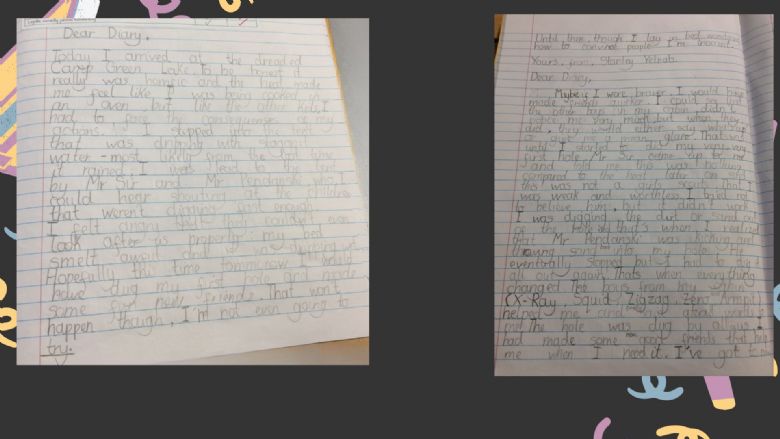 Dear Diary,
Today I arrived at the dreaded
Camp Green Lake. To be honest it
really was horrific and the heat made
me feel like I was being cooked in
an oven but like the other kids, I
had to face the consequences of my
actions. I stepped into the tent
that was dripping with
water - most likely from the last time
it rained. I was lead to the tent
by Mr Sir and Mr Pendanski who I
could hear shouting at the children
that weren't digging fast enough.
I felt angry that they couldn't even
look after us properly my bed
smelt awful and it was dripping wet.
Hopefully this time tomorrow I would
have dug my first hole and made
some new friends. That won't
happen though, I'm not even going to
try.
Until then though I lay in bed wondering
how to convince people I'm innocent.
Yours, from, Stanley Yelnats.
Dear Diary,
Maybe if I were braver, I would have
made friends quicker. I could see that
the other boys in my cabin didn't
notice me very much but when they
did, they would either say
or give me a glare. That was
until I started to dig my very
first hole. Mr Sir came up to me
and told me this was nothing
compared to the heat later on and
this was not a girls scouts. That I
was weak and worthless. I tried not
to believe him, but it didn't work.
I was digging the dirt or sand out
of the hole that's when I realised
that Mr Pendanski was kicking and
throwing sand into my hole. He
eventually stopped but I had to dig it
all out again. Thats when everything
changed. The boys from my cabin
(X-Ray, Squid, Zigzag, Zero, Armpit)
helped me and great
me. The hole was dug by all us, I
had made some great friends that help
me when I need it. I've got to